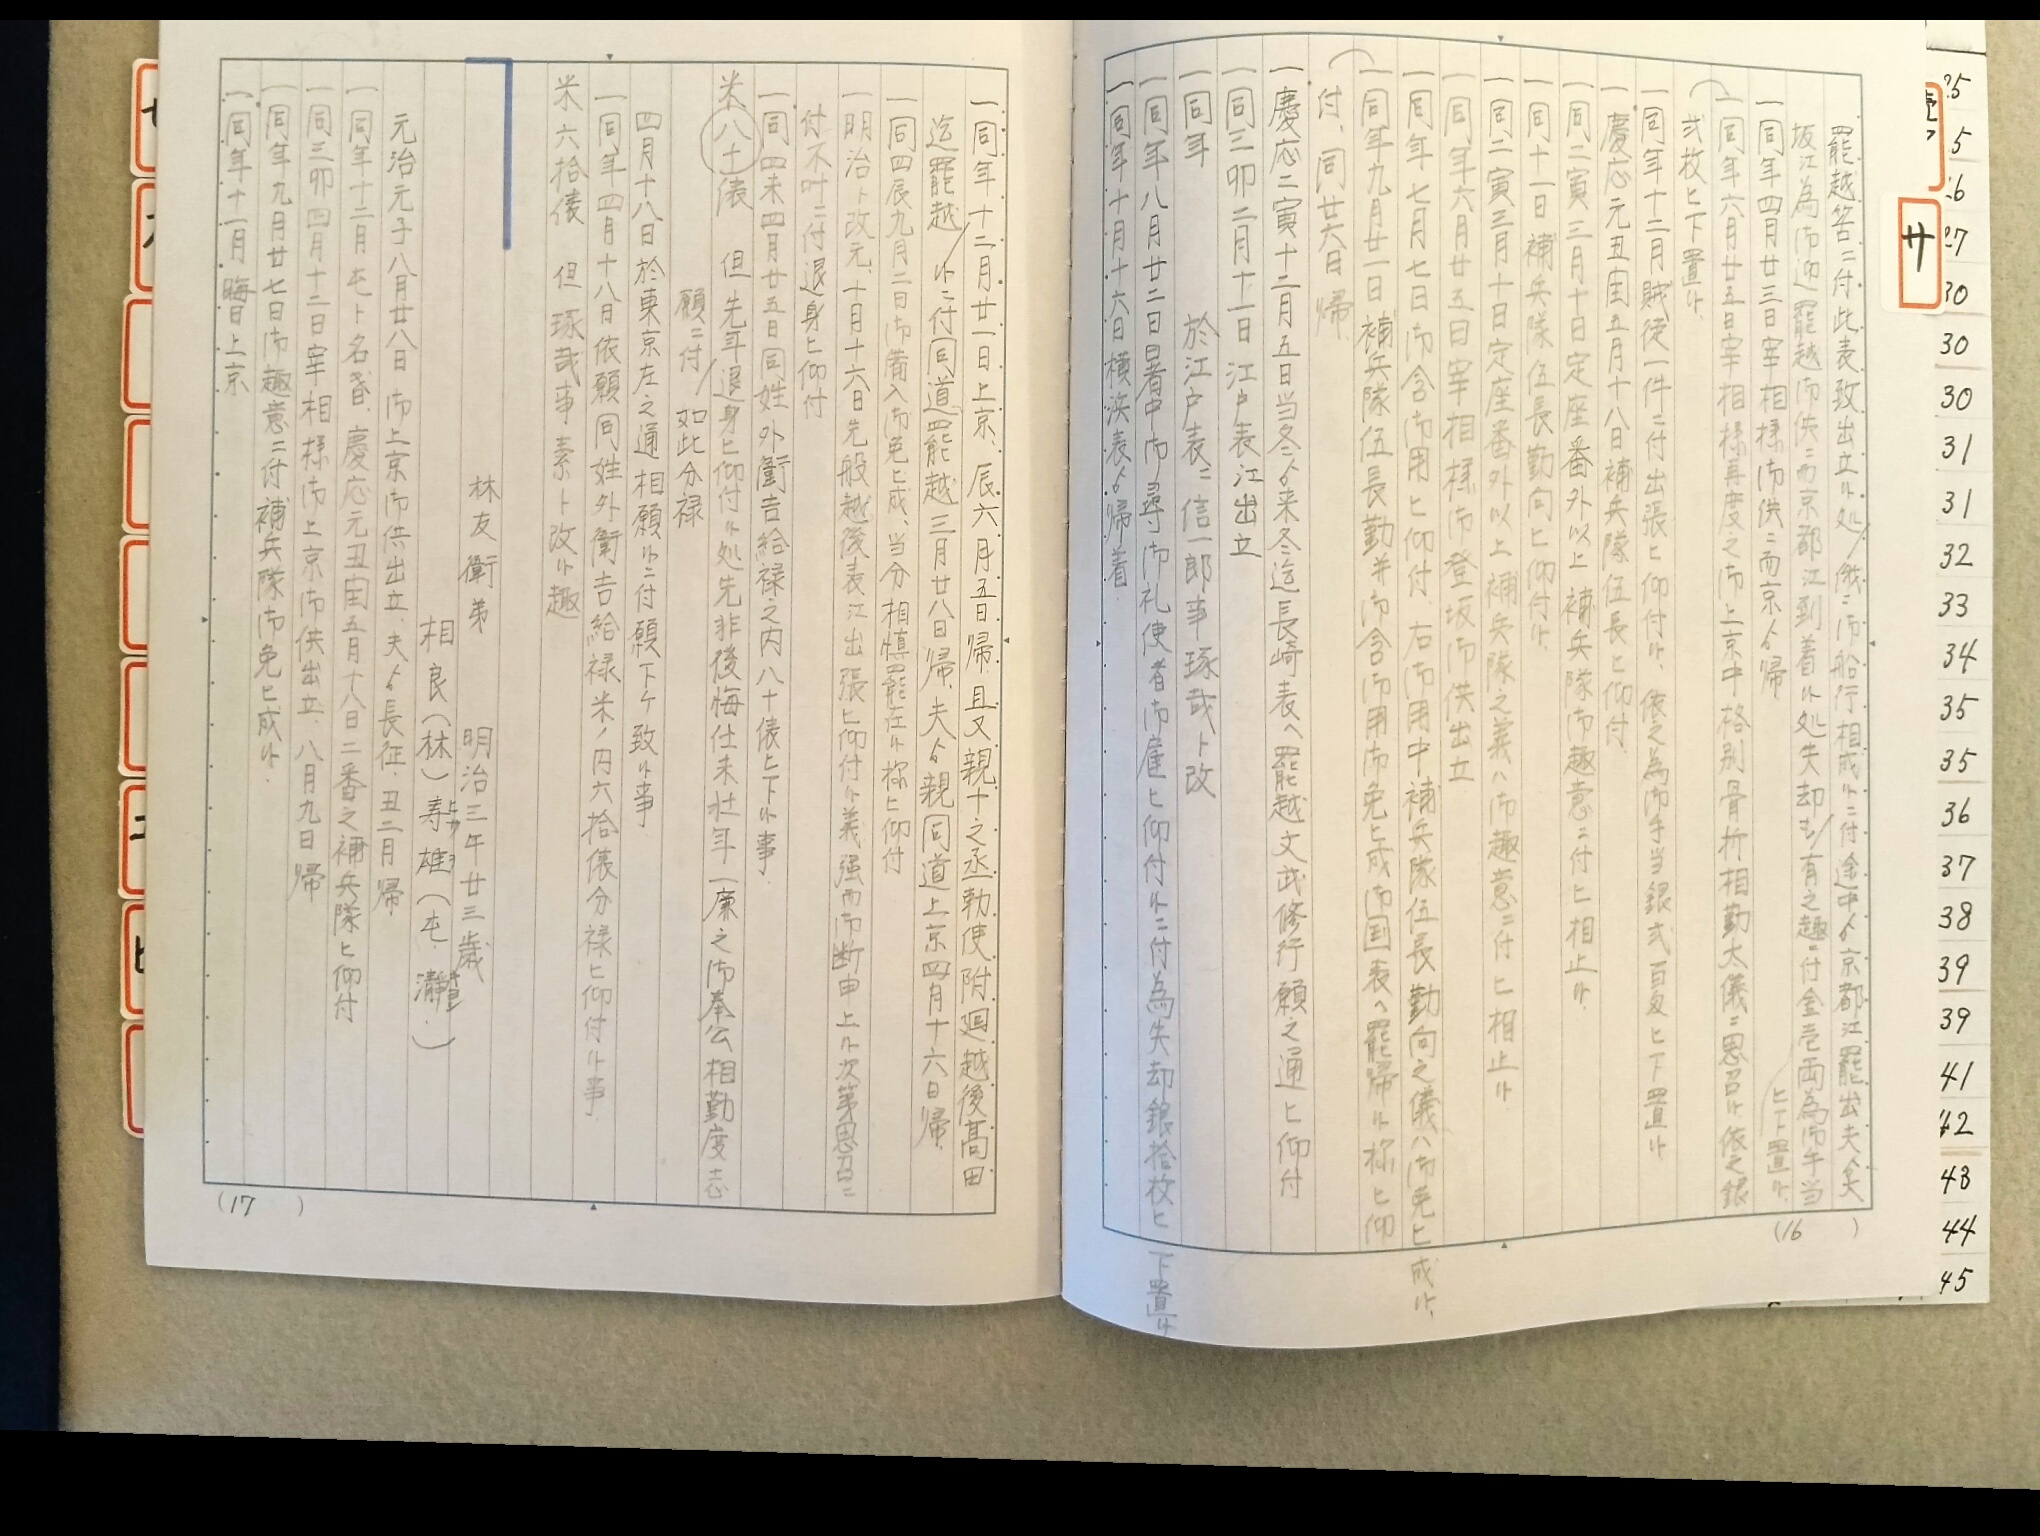 罷越筈ニ付此表致出立候処/俄ニ御船行相成候ニ付途中ゟ京都江罷出夫ゟ大
坂江為御迎罷越御供ニ而京都江到着候処失却も/有之趣ニ付金壱両為御手当
ヒ下置候
一同年四月廿三日宰相様御供ニ而京ゟ帰
一同年六月廿五日宰相様再度之御上京中格別骨折相勤大儀ニ思召候、依之銀
弐枚ヒ下置候、
一同年十二月賊徒一件ニ付出張ヒ仰付候、依之為御手当銀弐百疋ヒ下置候
一慶応元丑閏五月十八日補兵隊伍長ヒ仰付
一同二寅三月十日定座番外以上補兵隊御趣意ニ付ヒ相止候、
一同十一日補兵隊伍長勤向ヒ仰付候、
一同二寅三月十日定座番外以上補兵隊之義ハ御趣意ニ付ヒ相止候
一同年六月廿五日宰相様御登坂御供出立
一同年七月七日御含御用ヒ仰付、右御用中補兵隊伍長勤向之儀ハ御免ヒ成候、
一同年九月廿一日補兵隊伍長勤并御含御用御免ヒ成御国表へ罷帰候様ヒ仰
付、同廿六日帰、
一慶応二寅十二月五日当冬ゟ来冬迄長崎表へ罷越文武修行願之通ヒ仰付
一同三卯二月十一日江戸表江出立
一同年 於江戸表ニ信一郎事琢哉ト改
一同年八月廿二日暑中御尋御礼使者御雇ヒ仰付候ニ付為失却銀拾枚ヒ下置候
一同年十月十六日横浜表ゟ帰着、
(16 )
一同年十二月廿一日上京、辰六月五日帰、且又親十之丞勅使附廻越後高田
迄罷越/候ニ付同道罷越三月廿八日帰、夫ゟ親同道上京四月十六日帰、
一同四辰九月二日御備入御免ヒ成、当分相慎罷在候様ヒ仰付
一明治ト改元、十月十六日先般越後表江出張ヒ仰付候義強而御断申上候次第思召ニ
付不叶ニ付退身ヒ仰付
一同四未四月廿五日同姓外衛吉給禄之内八十俵ヒ下候事、
米八十俵 但先年/退身ヒ仰付候処先非後悔仕未壮年一廉之御奉公相勤度志
願ニ付/如此分禄
四月十八日於東京左之通相願候ニ付願下ケ致候事
一同年四月十八日依願同姓外衛吉給禄米ノ内六拾俵分禄ヒ仰付候事
米六拾俵 但琢哉事素ト改候趣
林友衛弟 明治三午廿三歳
相良(林)寿雄(屯、瀞)
元治元子八月廿八日御上京御供出立、夫ゟ長征、丑二月帰
一同年十二月屯ト名替、慶応元丑閏五月十八日二番之補兵隊ヒ仰付
一同三卯四月十二日宰相様御上京御供出立、八月九日帰
一同年九月廿七日御趣意ニ付補兵隊御免ヒ成候、
一同年十一月晦日上京
(17 )
廿
30
30
31
31
32
33
34
35
35
36
37
38
39
39
41
42
43
44
45